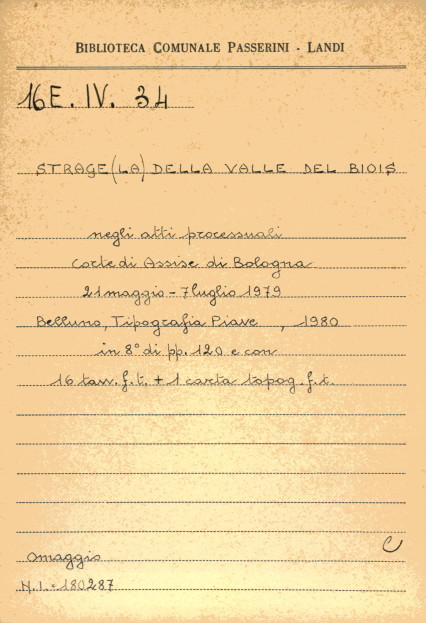 BIBLIOTECA COMUNALE PASSERINI - LANDI
16E. IV. 34
STRAGE (LA) DELLA VALLE DEL BIOIS
negli atti processuali
Corte di Assise di Bologna
21 maggio - 7 luglio 1979
Belluno, Tipografia Piave, 1980
in 8° di pp. 120 e con
16 tavv. f.t. + 1 carta topog. f.t.
C
omaggio
N.I. = 180287